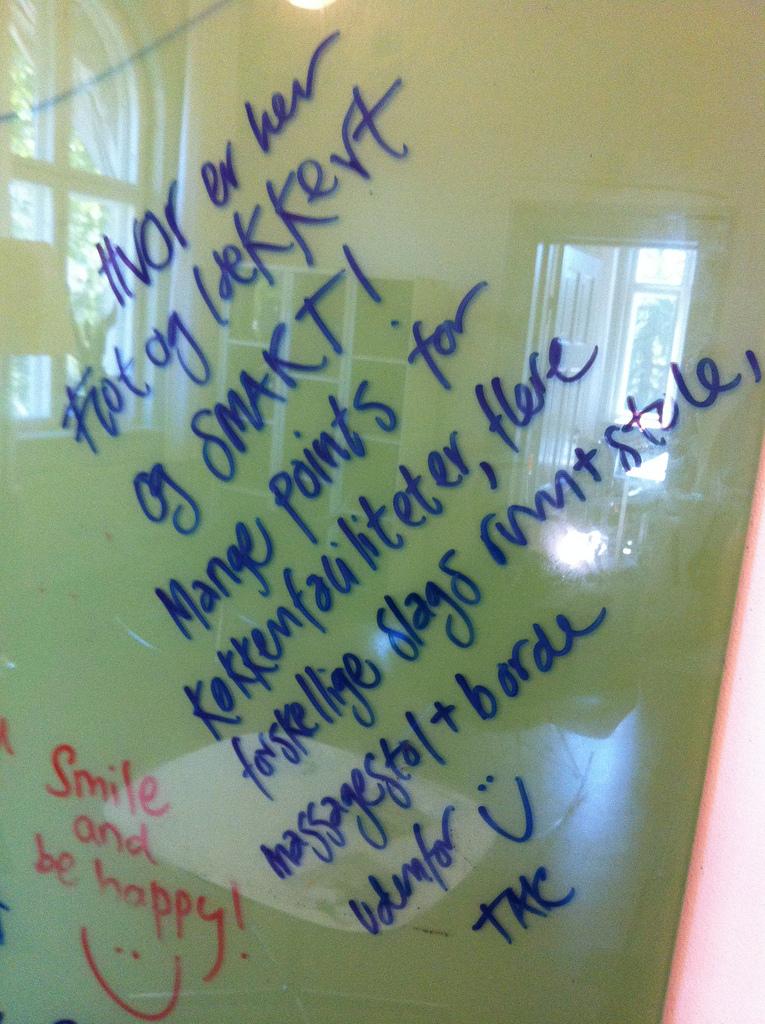 Hvor er her
flot og lækkert
og SMART!
Mange points for
køkkenfaciliteter, flere
forskellige slags rum + stole,
massagestol + borde
udenfor
TAK
Smile
and
be happy!